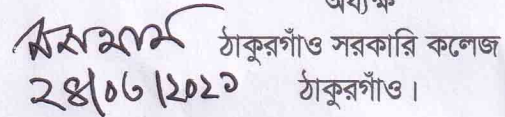 অধ্যক্ষ
ঠাকুরগাঁও সরকারি কলেজ
২৪/০৬/২০২১ ঠাকুরগাঁও।